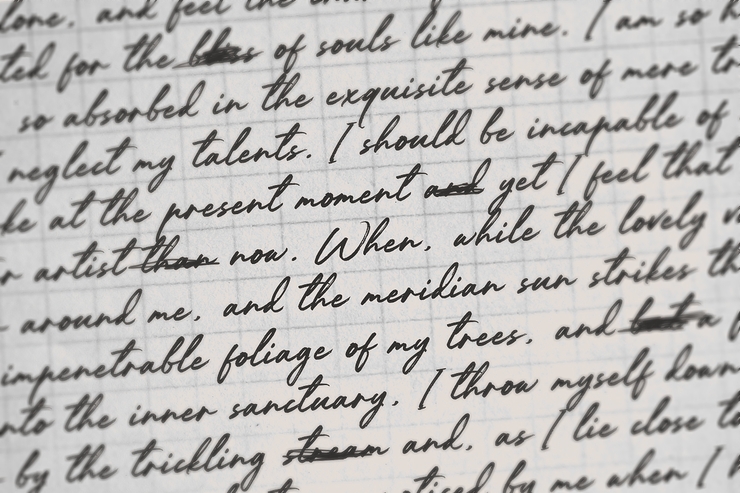 lone, and feel the
ted for the bliss of souls like mine. I am so h
so absorbed in the exquisite sense of mere tr
neglect my talents. I should be incapable of
ke at the present moment and yet I feel that
r artist than now. When, while the lovely v
around me, and the meridian sun strikes th
impenetrable foliage of my trees, and but a
nto the inner sanctuary, I throw myself down
by the trickling stream and, as I lie close to
by me when I